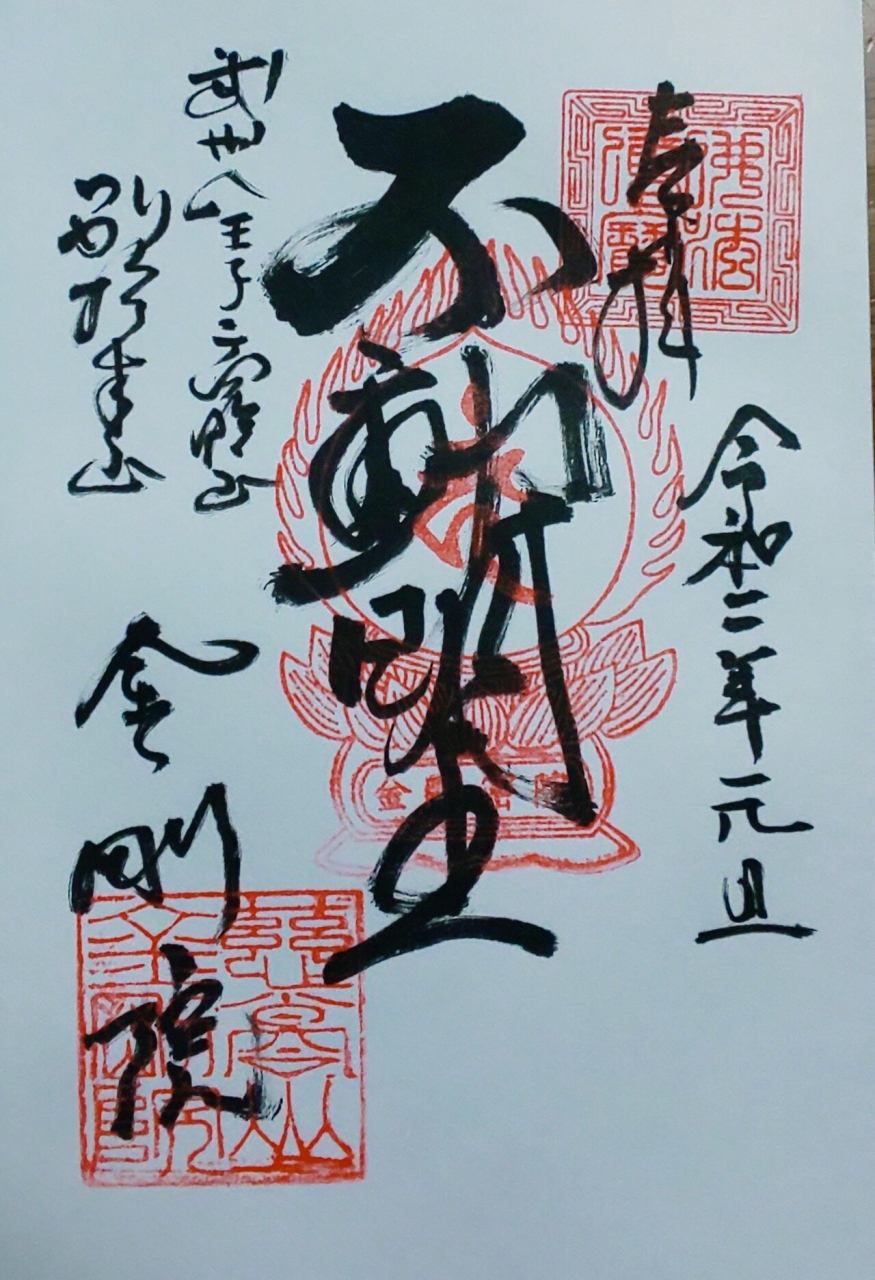 奉拝
佛法
僧寶
令和二年元旦
不動明王
武州八王子
別格本山
金剛院
慈高山
金剛院